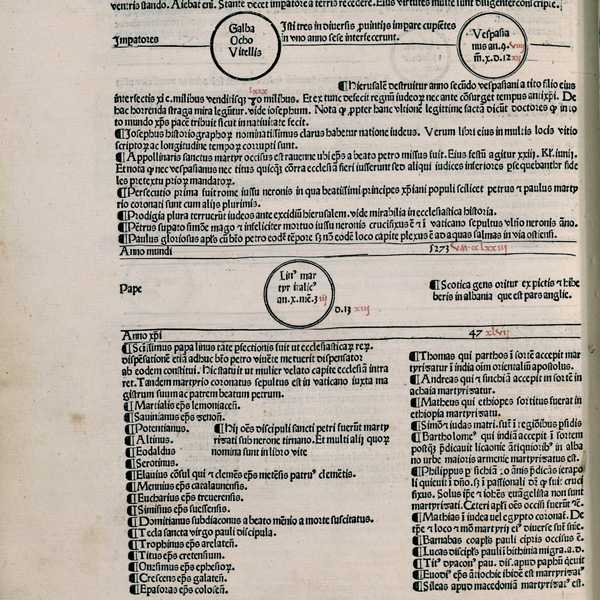 ventris stando. Aiebat eni. Stante decet imperatore a terris recedere. Eius virtutes multe sunt diligenter conscripte.
Impatores
Galba
Otho
Vitellis
Isti tres in diversis, puintijs impare cupientes
in uno anno sese interfecerunt.
Vespasia
nus an. 9. viii
m. x. d. 12 xii
lxxx
¶ Hierusalem destruitur anno secundo vespasiani a tito filio eius
intersectis xi c. milibus venditisque 70 milibus. Et ex tunc defecit regnum iudeorum nec ante consurget tempus antixpi. De
hac horrenda strage mira leguntur. vide iosephum. Nota quod propter hanc ultionem legittime sacta dicunt doctores quod in to
to mundo christus pacem tribuit sicut in natiuitate fecit.
¶ Josephus historiographorum nominatissimus clarus habetur natione iudeus. Verum libri eius in multis locis vitio
scriptorum ac longitudine temporum corrupti sunt.
¶ Appollinaris sanctus martyr occisus est rauenne ubi eps a beato petro missus fuit. Eius festum agitur xxiij. Kl. iunij.
Et nota quod nec vespasianus nec titus quicquam contra ecclesiam fieri iusserunt sed aliqui iudices inferiores persequebantur fide
les pretextu priorum mandatorum.
¶ Persecutio prima fuit rome iussu neronis in qua beatissimi principes xpiani populi scilicet petrus et paulus marty
rio coronati sunt cum alijs plurimis.
¶ Prodigia plura terruerunt iudeos ante excidium hierusalem. vide mirabilia in ecclesiastica historia.
¶ Petrus supato simone mago et infeliciter mortuo iussu neronis crucifixus est et in vaticano sepultus ultimo neronis anno.
¶ Paulus gloriosus apls cum beato petro eodem tempore sed non eodem loco capite plexus est ad aquas saluias in via ostiensi.
Anno mundi
5273 vm cclxxiij
Pape
Lin9 mar
tyr italic9
an. x. me. 3 iij
D. 13 xij
¶ Scotica gens oritur ex pictis et hibe
bernis in albania que est pars anglie.
Anno xpi
47 xlvij
¶ Scissimus papa linus rate psectionis fuit ut ecclesiasticarum rerum.
dispensatione etiam adhuc beato petro vivente metuerit dispensator
ab eodem constitui. Hic statuit ut mulier velato capite ecclesiam intra
ret. Tandem martyrio coronatus sepultus est in vaticano iuxta ma
gistrum suum ac patrem beatum petrum.
¶ Martialis eps lemonicen.
¶ Savinianus eps zenon.
¶ Potentianus.
¶ Altinus.
¶ Eodaldus
¶ Serotinus.
¶ Hij oes discipuli sancti petri fuerunt marty
rizati sub nerone tirnano. Et multi alij quorum
nomina sunt in libro vite
¶ Elavius consul qui et clemens eps metensis patruus clementis.
¶ Mennius eps catalaunen.
¶ Eucharius eps treuerensis.
¶ Sixistus eps suessensis.
¶ Domitianus subdiaconus a beato menio a morte suscitatus.
¶ Tecla sancta virgo pauli discipula.
¶ Trophinus eps arelaten.
¶ Titus eps cretensium.
¶ Onesimus eps ephesiorum.
¶ Crescens eps galaten.
¶ Epafras eps colosen.
¶ Thomas qui parthos in sortem accepit mar
tyrizatur in india oim orientalium apostolus.
¶ Andreas qui et scithiam accepit in sortem in
achaia martyrizatur.
¶ Matheus qui ethiopes sortitus fuerat in
ethiopia martyrizatur.
¶ Simon iudas matri. sunt in regionibus psidis
¶ Bartholomeus qui indiam accepit in sortem
postquam predicauit licaonie antiquioribus in alba
no urbe maioris armenie martyrizatus est.
¶ Philippus per scithiam 20 annis predicans ierapo
li quieuit in domino sed in passionali sancti quod fuit cruci
fixus. Solus ipse et iohannes euangelista non sunt
martyrizati. Ceteri apostoli omnes occisi fuerunt etc.
¶ Mathias in iudea vel egypto coronatur. De
tempore et loco et modo martyrij eius diverse sunt sententie.
¶ Barnabas coapostolus pauli cipris occisus est.
¶ Lucas discipulus pauli in bithinia migra. a. d.
¶ Titus dyaconus pauli. dis. apud paphum quieuit
¶ Euodius eps antiochie ibidem est martyrizatus.
¶ Sileas apud macedoniam martyrizatus est.